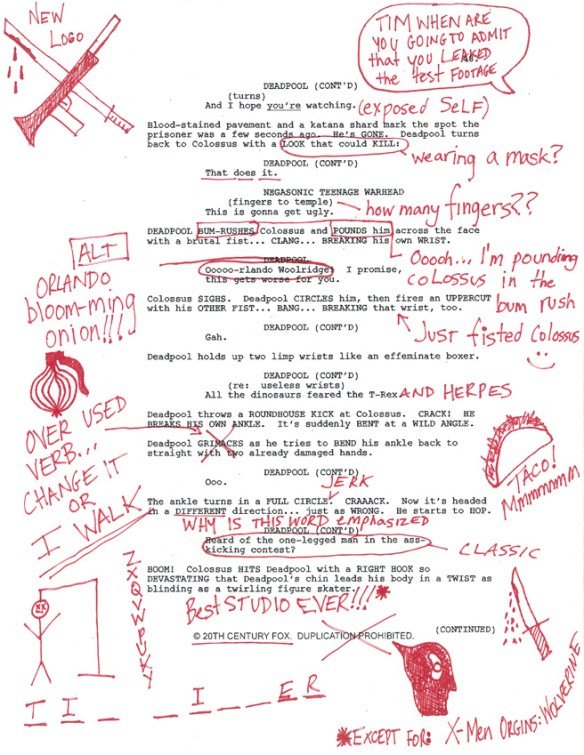 NEW
LOGO
TIM WHEN ARE
YOU GOING TO ADMIT
that you LEAKED
the test FOOTAGE
DEADPOOL (CONT'D)
(turns)
And I hope you're watching. (exposed SELF)
Blood-stained pavement and a katana shard mark the spot the
prisoner was a few seconds ago. He's GONE. Deadpool turns
back to Colossus with a LOOK that could KILL:
wearing a mask?
DEADPOOL (CONT'D)
That does it.
NEGASONIC TEENAGE WARHEAD
(fingers to temple)
This is gonna get ugly.
how many fingers??
DEADPOOL BUM-RUSHES Colossus and POUNDS him across the face
with a brutal fist... CLANG... BREAKING his own WRIST.
ALT
ORLANDO
bloom-ming
onion!!!
DEADPOOL
Ooooo-rlando Woolridge! I promise,
this gets worse for you.
Ooooh... I'm pounding
coLossus in the
bum rush
Colossus SIGHS. Deadpool CIRCLES him, then fires an UPPERCUT
with his OTHER FIST... BANG... BREAKING that wrist, too.
Just fisted Colossus
DEADPOOL (CONT'D)
Gah.
Deadpool holds up two limp wrists like an effeminate boxer.
DEADPOOL (CONT'D)
(re: useless wrists)
All the dinosaurs feared the T-Rex. AND HERPES
OVER USED
VERB...
CHANGE IT
OR
I WALK
Deadpool throws a ROUNDHOUSE KICK at Colossus. CRACK! HE
BREAKS HIS OWN ANKLE. It's suddenly BENT at a WILD ANGLE.
Deadpool GRIMACES as he tries to BEND his ankle back to
straight with two already damaged hands.
TACO!
Mmmmmmmm
DEADPOOL (CONT'D)
Ooo.
JERK
The ankle turns in a FULL CIRCLE. CRAAACK. Now it's headed
in a DIFFERENT direction... just as WRONG. He starts to HOP.
WHY IS THIS WORD emphasized
DEADPOOL (CONT'D)
Heard of the one-legged man in the ass-
kicking contest?
CLASSIC
BOOM! Colossus HITS Deadpool with a RIGHT HOOK so
DEVASTATING that Deadpool's chin leads his body in a TWIST as
blinding as a twirling figure skater.
Best STUDIO EVER!!!*
© 20TH CENTURY FOX. DUPLICATION PROHIBITED.
(CONTINUED)
Z
X
Q
V
W
P
U
K
Y
T I _ _ _ I _ _ E R
*EXCEPT FOR: X-Men ORGINS: WOLVERINE